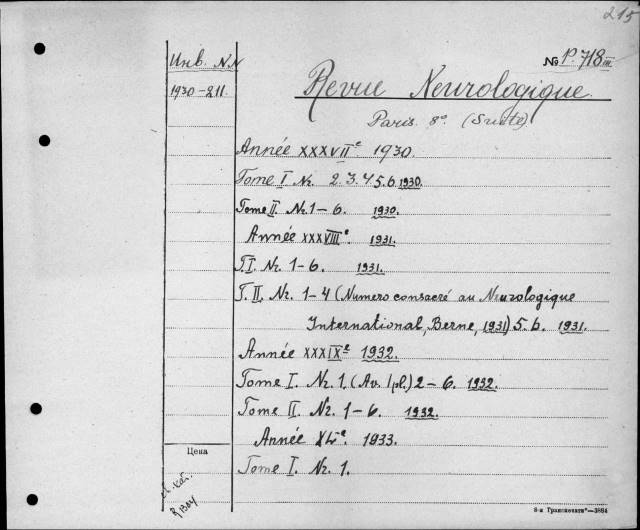 215
Инв. N.N
№ P.718 III
1930-211.
Revue Neurologique.
Paris. 8º. (Suite).
Année XXXVIIe 1930.
Tome I Nr. 2. 3. 4. 5. 6. 1930.
Tome II. Nr. 1-6. 1930.
Année XXXVIIIe. 1931.
T. I. Nr. 1-6. 1931.
T. II. Nr. 1-4 (Numero consacré au Neurologique
International, Berne, 1931) 5. 6. 1931.
Année XXXIXe 1932.
Tome I. Nr. 1. (Av. 1 pl.) 2-6. 1932.
Tome II. Nr. 1-6. 1932.
Année XLe. 1933.
Цена
Tome I. Nr. 1.
8-я Транспечати"—3884